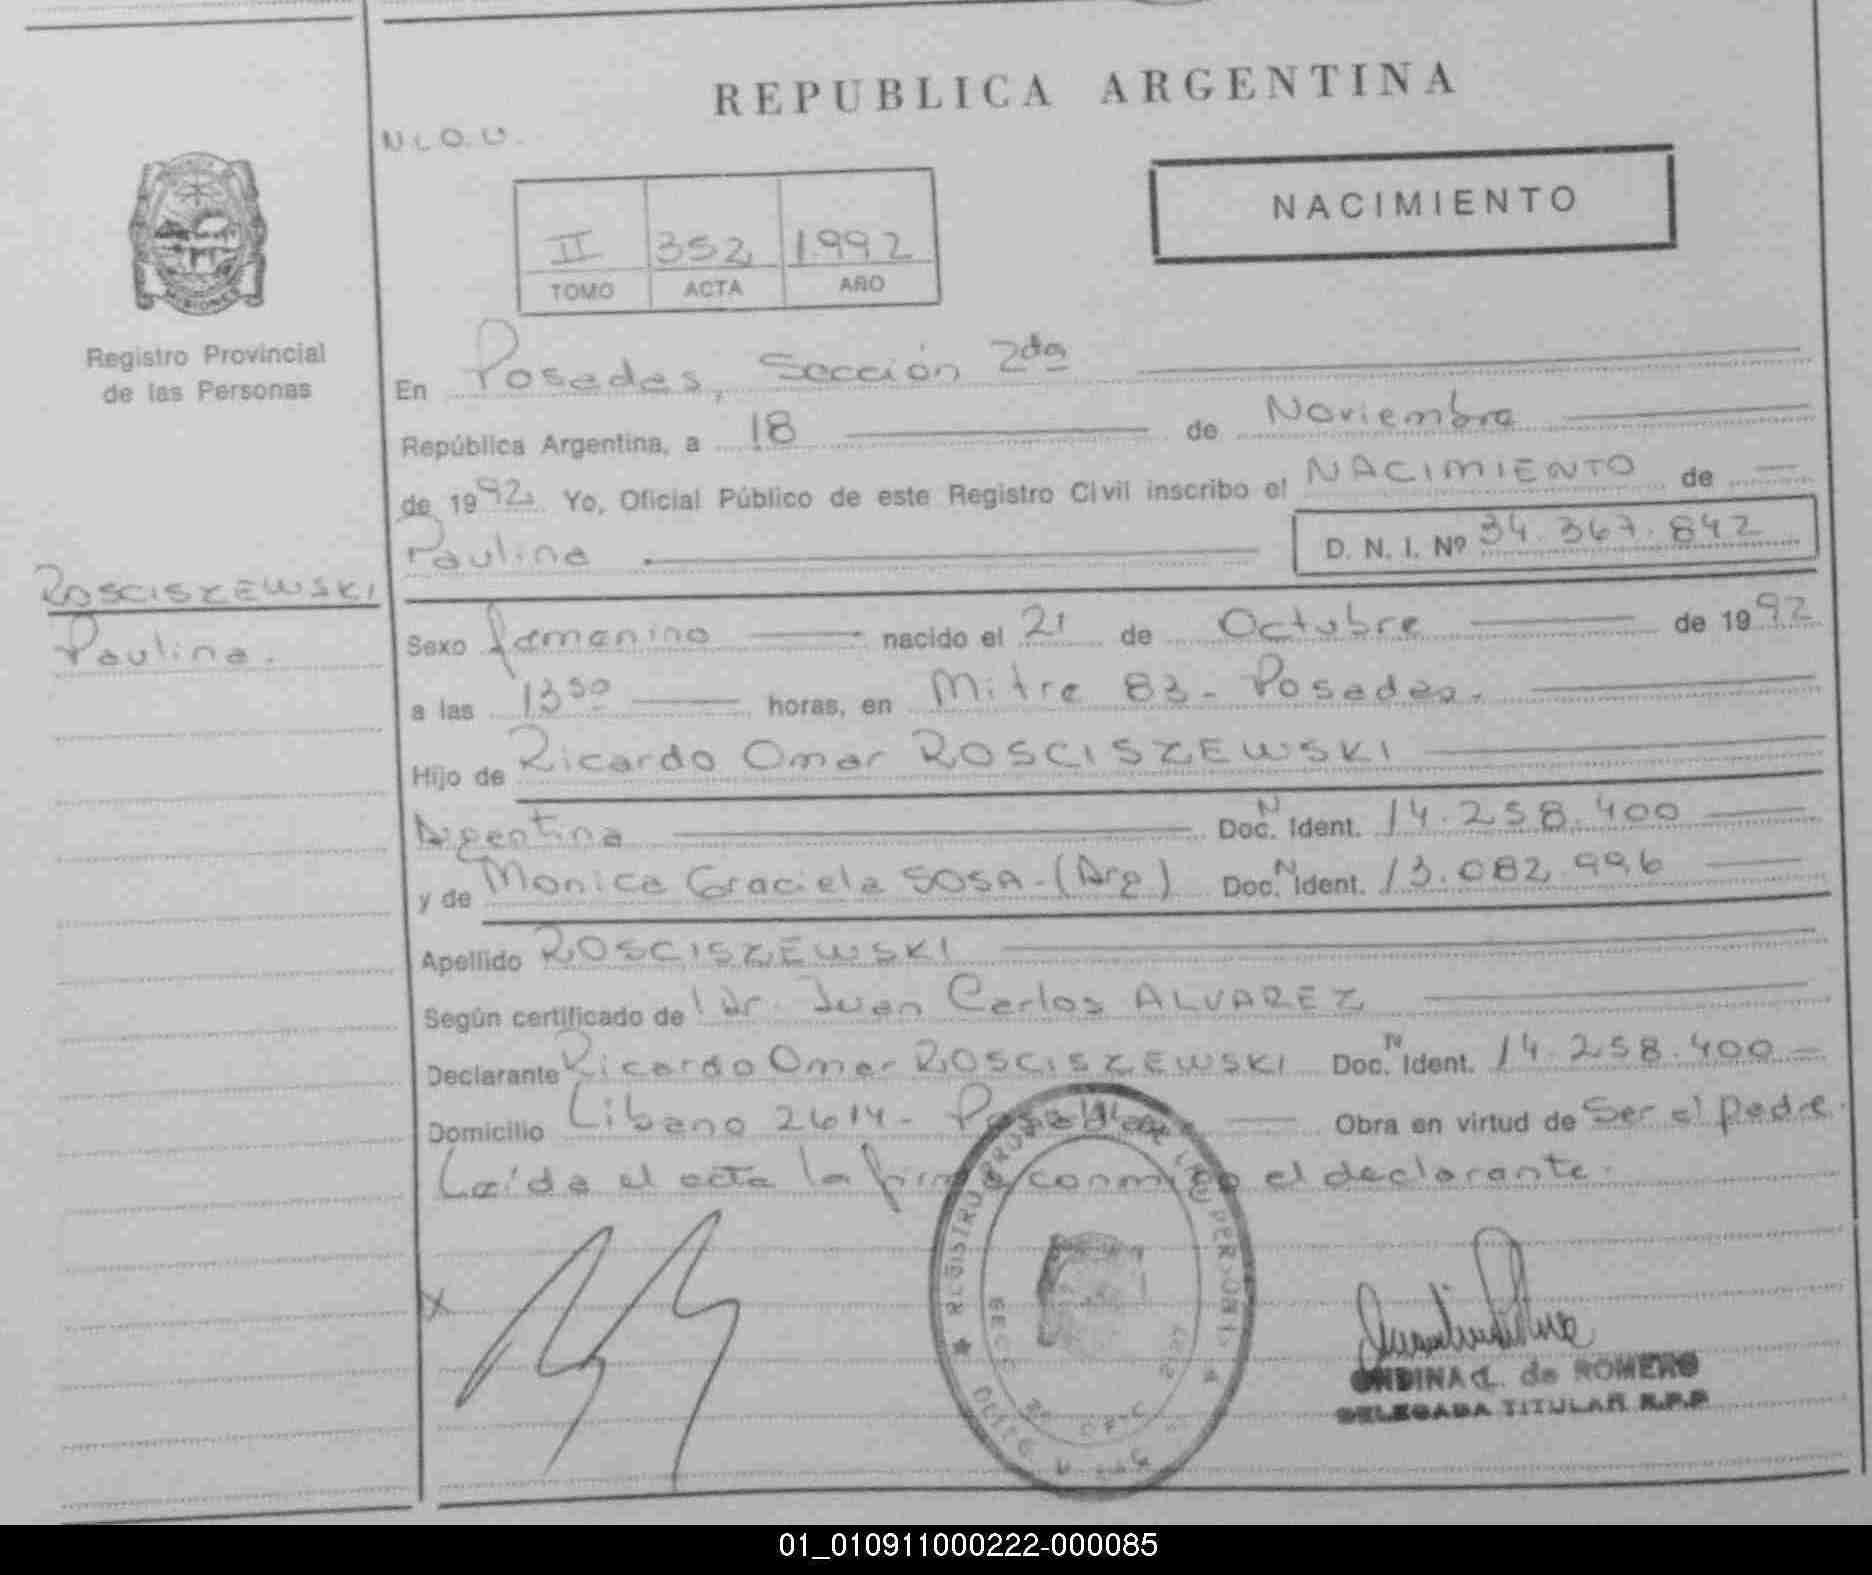 REPUBLICA ARGENTINA
NACIMIENTO
II 352 1992
TOMO ACTA AÑO
MISIONES
Registro Provincial
de las Personas
En Posadas, Sección 2da
República Argentina, a 18 de Noviembre
de 1992 Yo, Oficial Público de este Registro Civil inscribo el NACIMIENTO de
Paulina D. N. I. Nº 34.367.842
ROSCISZEWSKI
Paulina.
Sexo femenino nacido el 21 de Octubre de 1992
a las 13 50 horas, en Mitre 83 - Posadas.
Hijo de Ricardo Omar ROSCISZEWSKI
Argentina Doc. N Ident. 14.258.400
y de Monica Graciela SOSA - (Arg) Doc. N Ident. 13.082.996
Apellido ROSCISZEWSKI
Según certificado de Dr. Juan Carlos ALVAREZ
Declarante Ricardo Omar ROSCISZEWSKI Doc. N Ident. 14.258.400
Domicilio Libano 2614 - Posadas Obra en virtud de Ser el padre.
Leída el acta la firma conmigo el declarante.
X
REGISTRO
ONDINA de ROMERO
DELEGADA TITULAR R.P.P
01_010911000222-000085